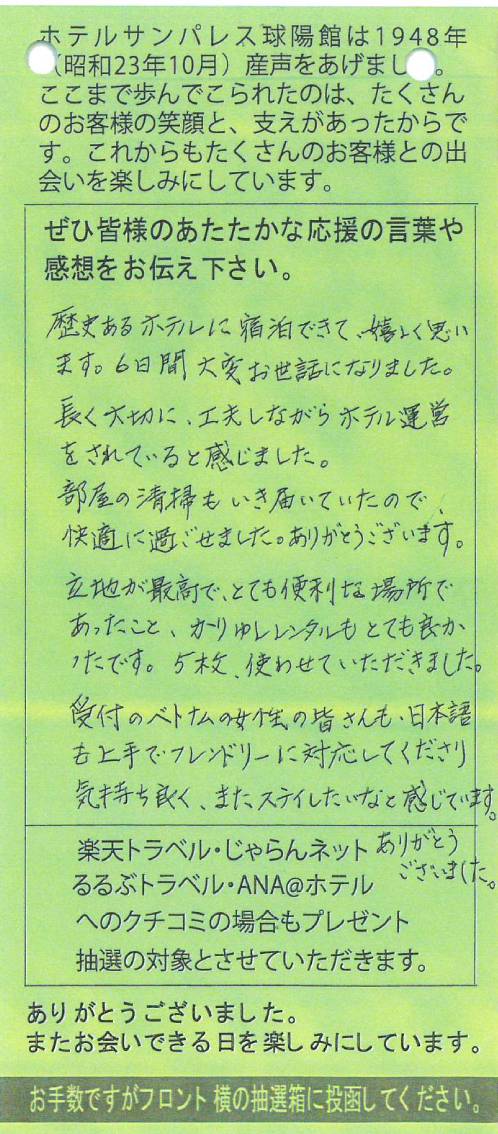 ホテルサンパレス球陽館は1948年
(昭和23年10月)産声をあげました。
ここまで歩んでこられたのは、たくさん
のお客様の笑顔と、支えがあったからで
す。これからもたくさんのお客様との出
会いを楽しみにしています。
ぜひ皆様のあたたかな応援の言葉や
感想をお伝え下さい。
歴史あるホテルに宿泊できて、嬉しく思い
ます。6日間大変お世話になりました。
長く大切に、工夫しながらホテル運営
をされていると感じました。
部屋の清掃もいき届いていたので、
快適に過ごせました。ありがとうございます。
立地が最高で、とても便利な場所で
あったこと、かりゆしレンタルもとても良か
ったです。5枚、使わせていただきました。
受付のベトナムの女性の皆さんも、日本語
も上手でフレンドリーに対応してくださり
気持ち良く、またステイしたいなと感じています。
ありがとう
ございました。
楽天トラベル・じゃらんネット
るるぶトラベル・ANA@ホテル
へのクチコミの場合もプレゼント
抽選の対象とさせていただきます。
ありがとうございました。
またお会いできる日を楽しみにしています。
お手数ですがフロント横の抽選箱に投函してください。